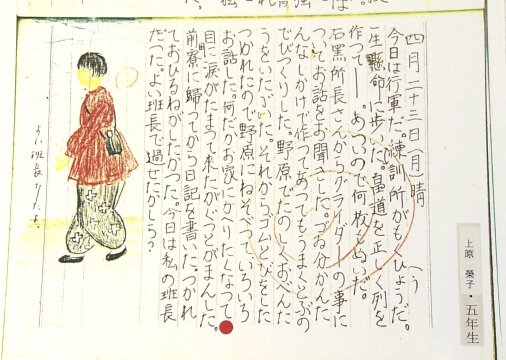 四月二十三日(月)晴 (う)
今日は行軍だ。練訓所がもくひょうだ。
一生懸命に歩いた。皇道を正しく列を
作って――。あついので何枚もぬいだ。
石黒所長さんからグライダーの事に
ついてお話をお聞きした。づ分かんた
んなしかけで作ってあってもうまくとぶの
でびっくりした。野原でたのしくおべんた
うをいたゞいた。それからゴムとびをした
つかれたので野原にねそべっていろいろ
お話した。何だかお家にかへりたくなって
目に涙がたまって来たがぐっとがまんした。
前寮に歸ってから日記を書いた。つかれ
ておひるねがしたかった。今日は私の班長
だった。よい班長で過せたかしら?
よい班長でしたよ
上原 榮子・五年生